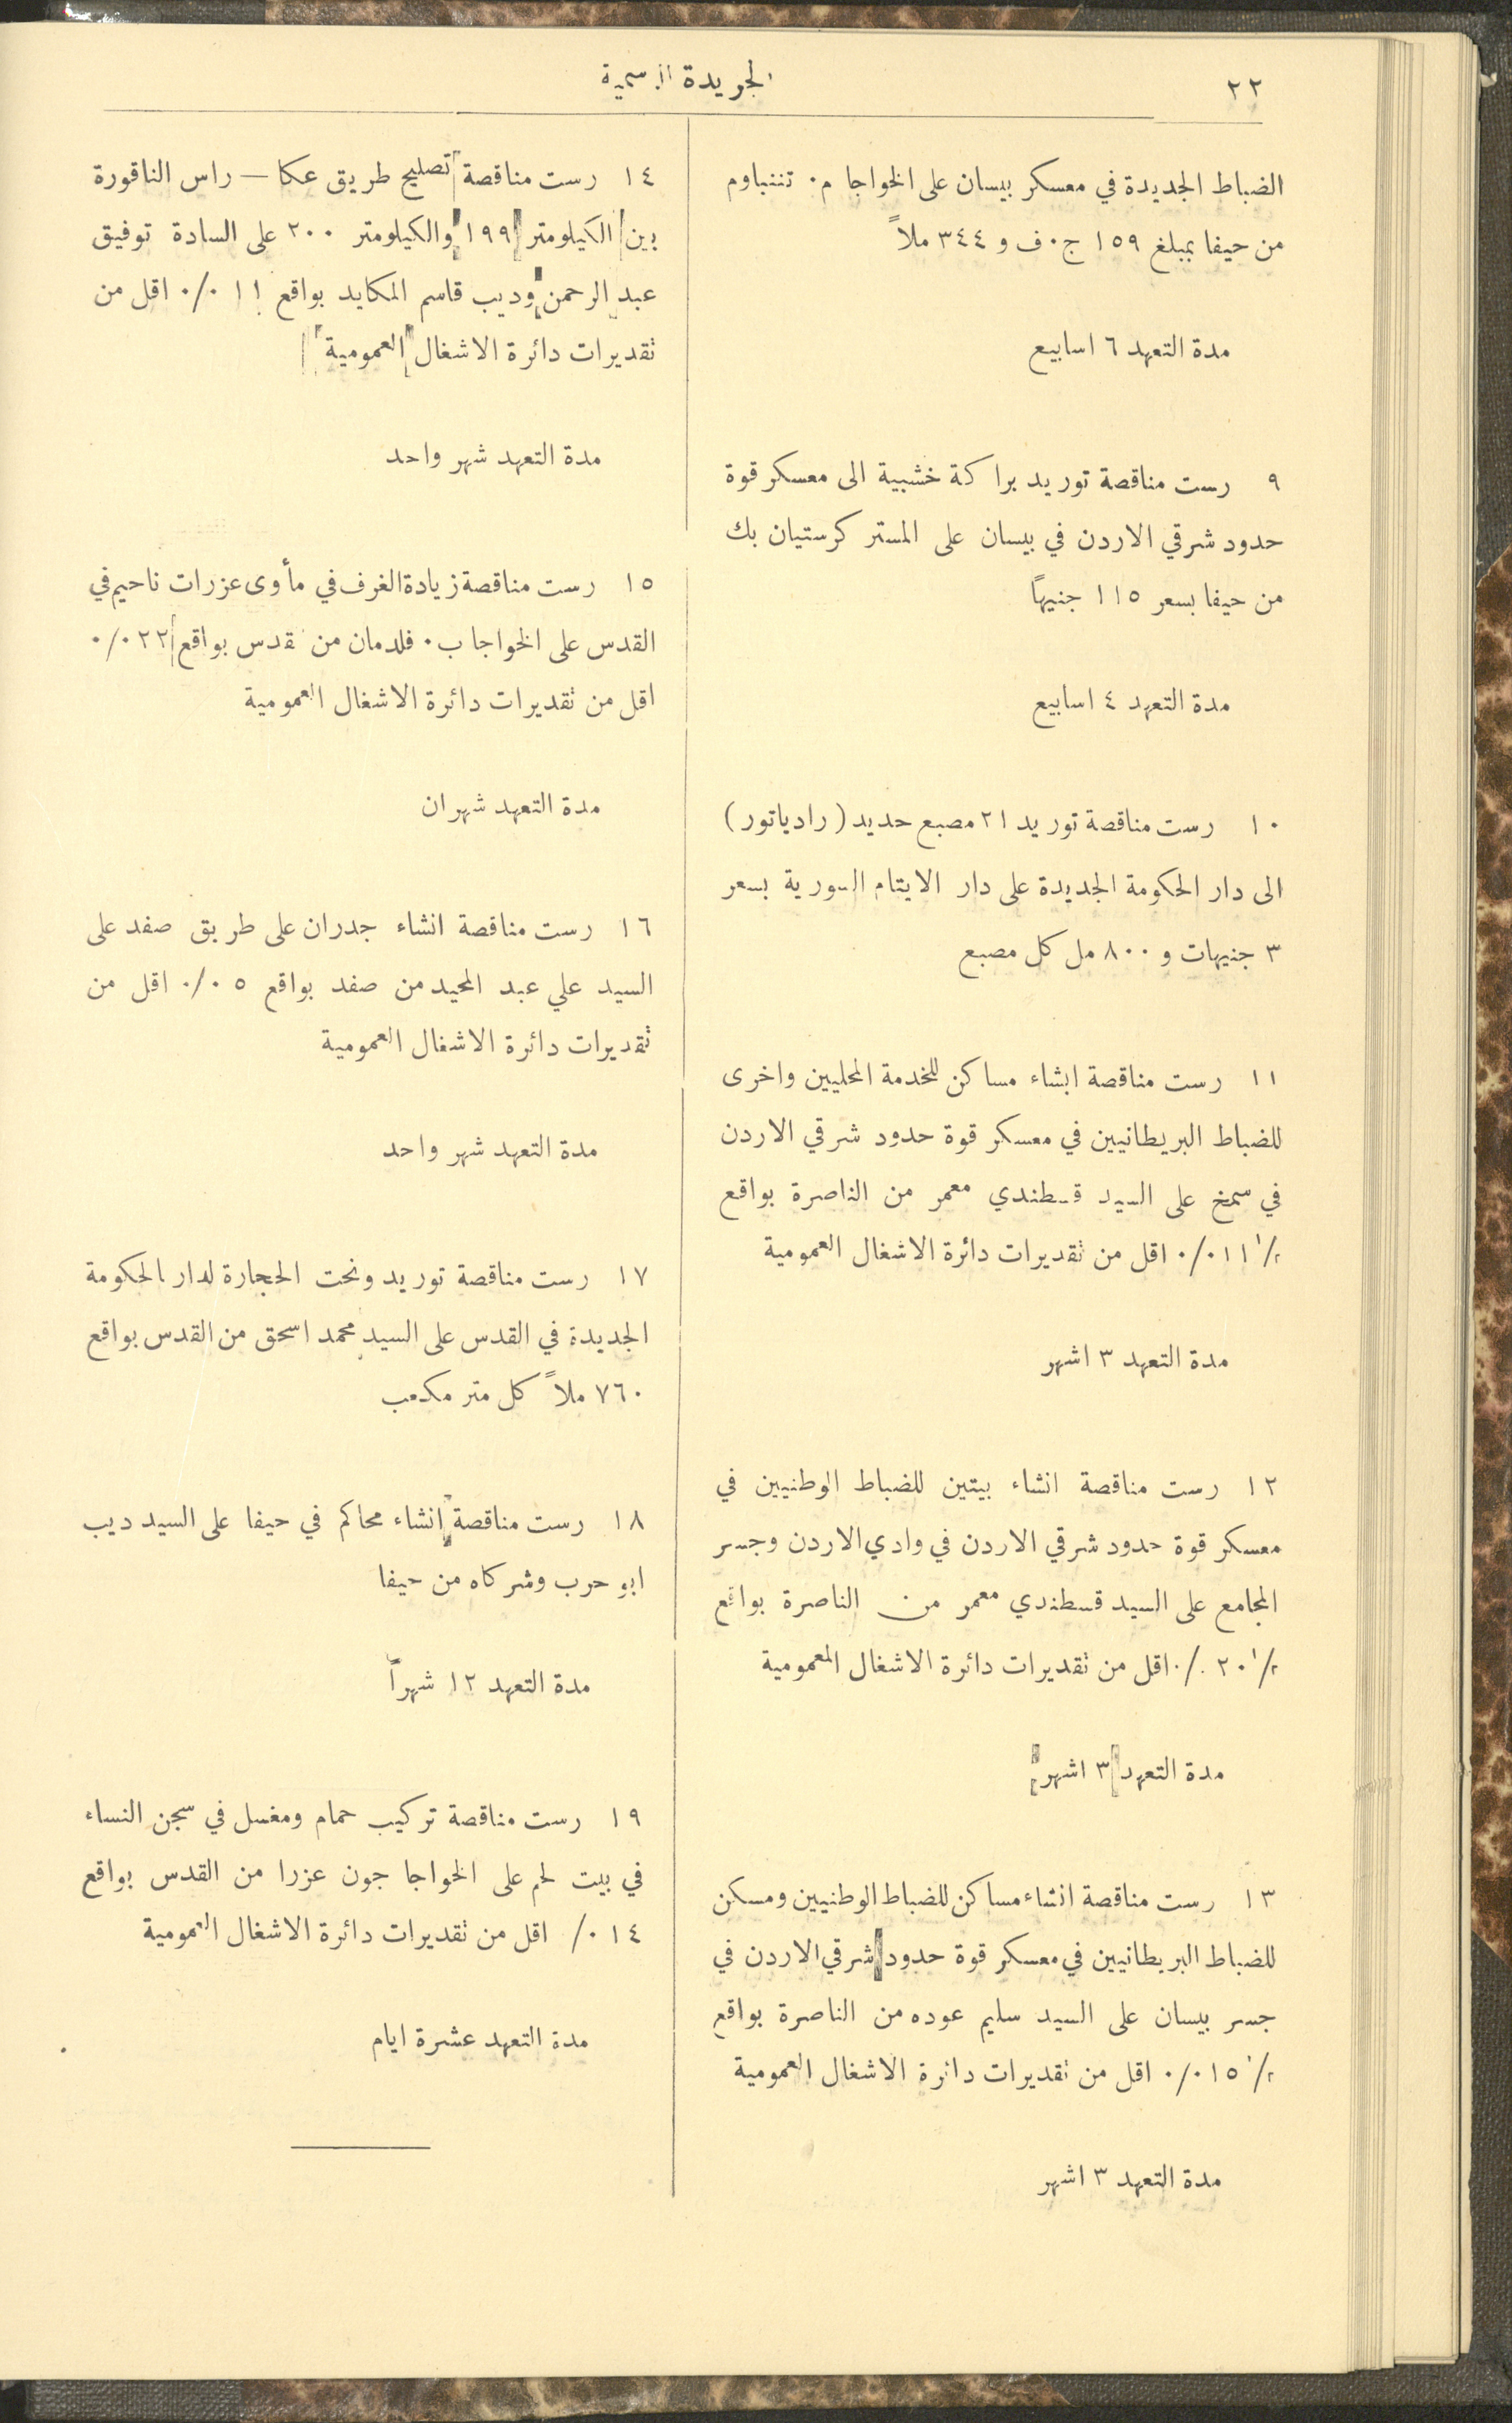 ٢٢
الجريدة الرسمية
الضباط الجديدة في معسكر بيسان على الخواجا م. تننباوم
من حيفا بمبلغ ١٥٩ ج. ف و ٣٤٤ ملاً
مدة التعهد ٦ اسابيع
٩ رست مناقصة توريد براكة خشبية الى معسكر قوة
حدود شرقي الاردن في بيسان على المستر كرستيان بك
من حيفا بسعر ١١٥ جنيهاً
مدة التعهد ٤ اسابيع
١٠ رست مناقصة توريد ٢١ مصبع حديد (رادياتور)
الى دار الحكومة الجديدة على دار الايتام السورية بسعر
٣ جنيهات و ٨٠٠ مل كل مصبع
١١ رست مناقصة ابشاء مساكن للخدمة المحليين واخرى
للضباط البريطانيين في معسكر قوة حدود شرقي الاردن
في سمخ على السيد قسطندي معمر من الناصرة بواقع
١/٢ ١١ ٠/٠ اقل من تقديرات دائرة الاشغال العمومية
مدة التعهد ٣ اشهر
١٢ رست مناقصة انشاء بيتين للضباط الوطنيين في
معسكر قوة حدود شرقي الاردن في وادي الاردن وجسر
المجامع على السيد قسطندي معمر من الناصرة بواقع
١/٢ ٢٠ ٠/٠ اقل من تقديرات دائرة الاشغال المعمومية
مدة التعهد ٣ اشهر
١٣ رست مناقصة انشاء مساكن للضباط الوطنيين ومسكن
للضباط البريطانيين في معسكر قوة حدود شرقي الاردن في
جسر بيسان على السيد سليم عوده من الناصرة بواقع
١/٢ ١٥ ٠/٠ اقل من تقديرات دائرة الاشغال العمومية
مدة التعهد ٣ اشهر
١٤ رست مناقصة تصليح طريق عكا — راس الناقورة
بين الكيلومتر ١٩٩ والكيلومتر ٢٠٠ على السادة توفيق
عبد الرحمن وديب قاسم المكايد بواقع ١١ ٠/٠ اقل من
تقديرات دائرة الاشغال العمومية
مدة التعهد شهر واحد
١٥ رست مناقصة زيادة الغرف في مأوى عزرات ناحيم في
القدس على الخواجا ب. فلدمان من قدس بواقع ٢٢ ٠/٠
اقل من تقديرات دائرة الاشغال العمومية
مدة التعهد شهران
١٦ رست مناقصة انشاء جدران على طريق صفد على
السيد علي عبد المحيد من صفد بواقع ٥ ٠/٠ اقل من
تقديرات دائرة الاشغال العمومية
مدة التعهد شهر واحد
١٧ رست مناقصة توريد ونحت الحجارة لدار الحكومة
الجديدة في القدس على السيد محمد اسحق من القدس بواقع
٧٦٠ ملاً كل متر مكعب
١٨ رست مناقصة انشاء محاكم في حيفا على السيد ديب
ابو حرب وشركاه من حيفا
مدة التعهد ١٢ شهراً
١٩ رست مناقصة تركيب حمام ومغسل في سجن النساء
في بيت لحم على الخواجا جون عزرا من القدس بواقع
١٤ ٠/ اقل من تقديرات دائرة الاشغال العمومية
مدة التعهد عشرة ايام